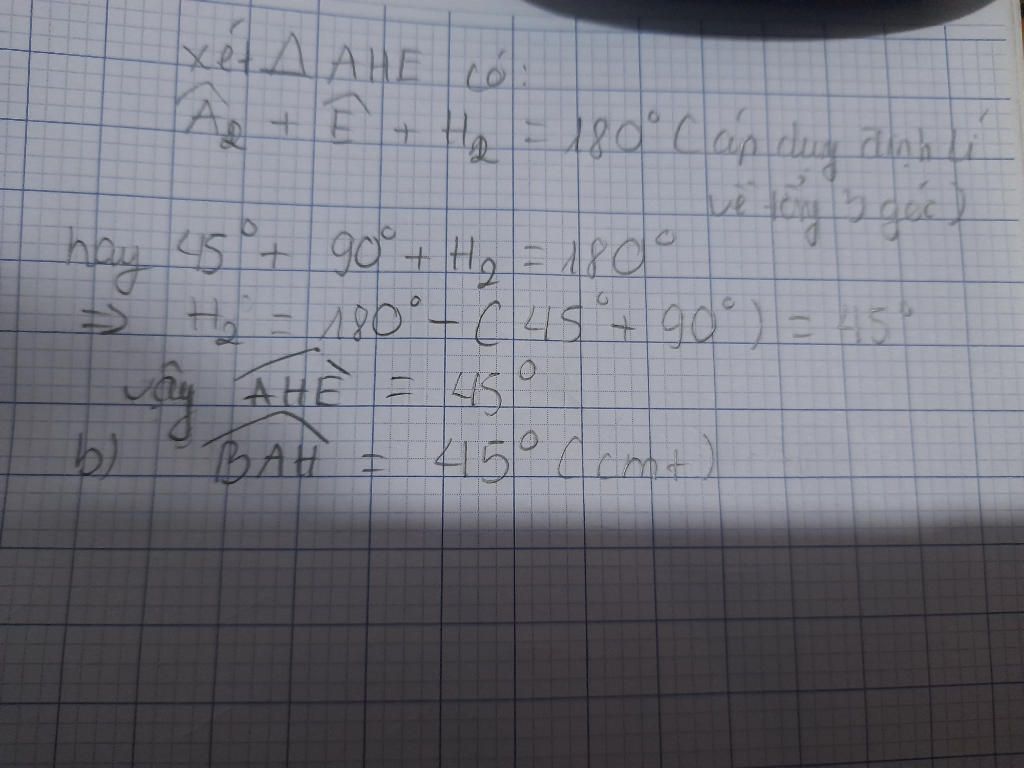 xét Δ AHE có:
Â₂ + Ê + H₂ = 180° (áp dụng định lí
về tổng 3 góc)
hay 45° + 90° + H₂ = 180°
=> H₂ = 180° - (45° + 90°) = 45°
vậy \widehat{AHE} = 45°
b) \widehat{BAH} = 45° (cmt)